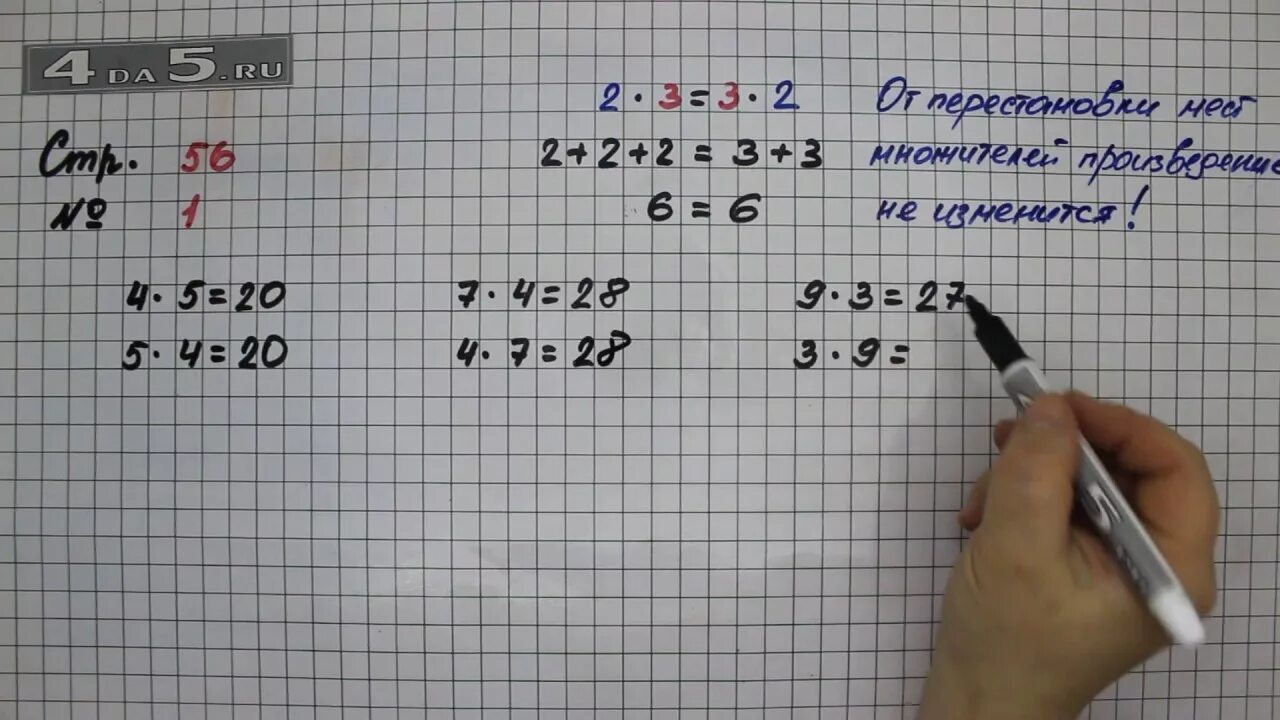 4DA5.RU
2 · 3 = 3 · 2
2 + 2 + 2 = 3 + 3
6 = 6
От перестановки мест
множителей произведение
не изменится!
Стр. 56
№ 1
4 · 5 = 20
5 · 4 = 20
7 · 4 = 28
4 · 7 = 28
9 · 3 = 27
3 · 9 =